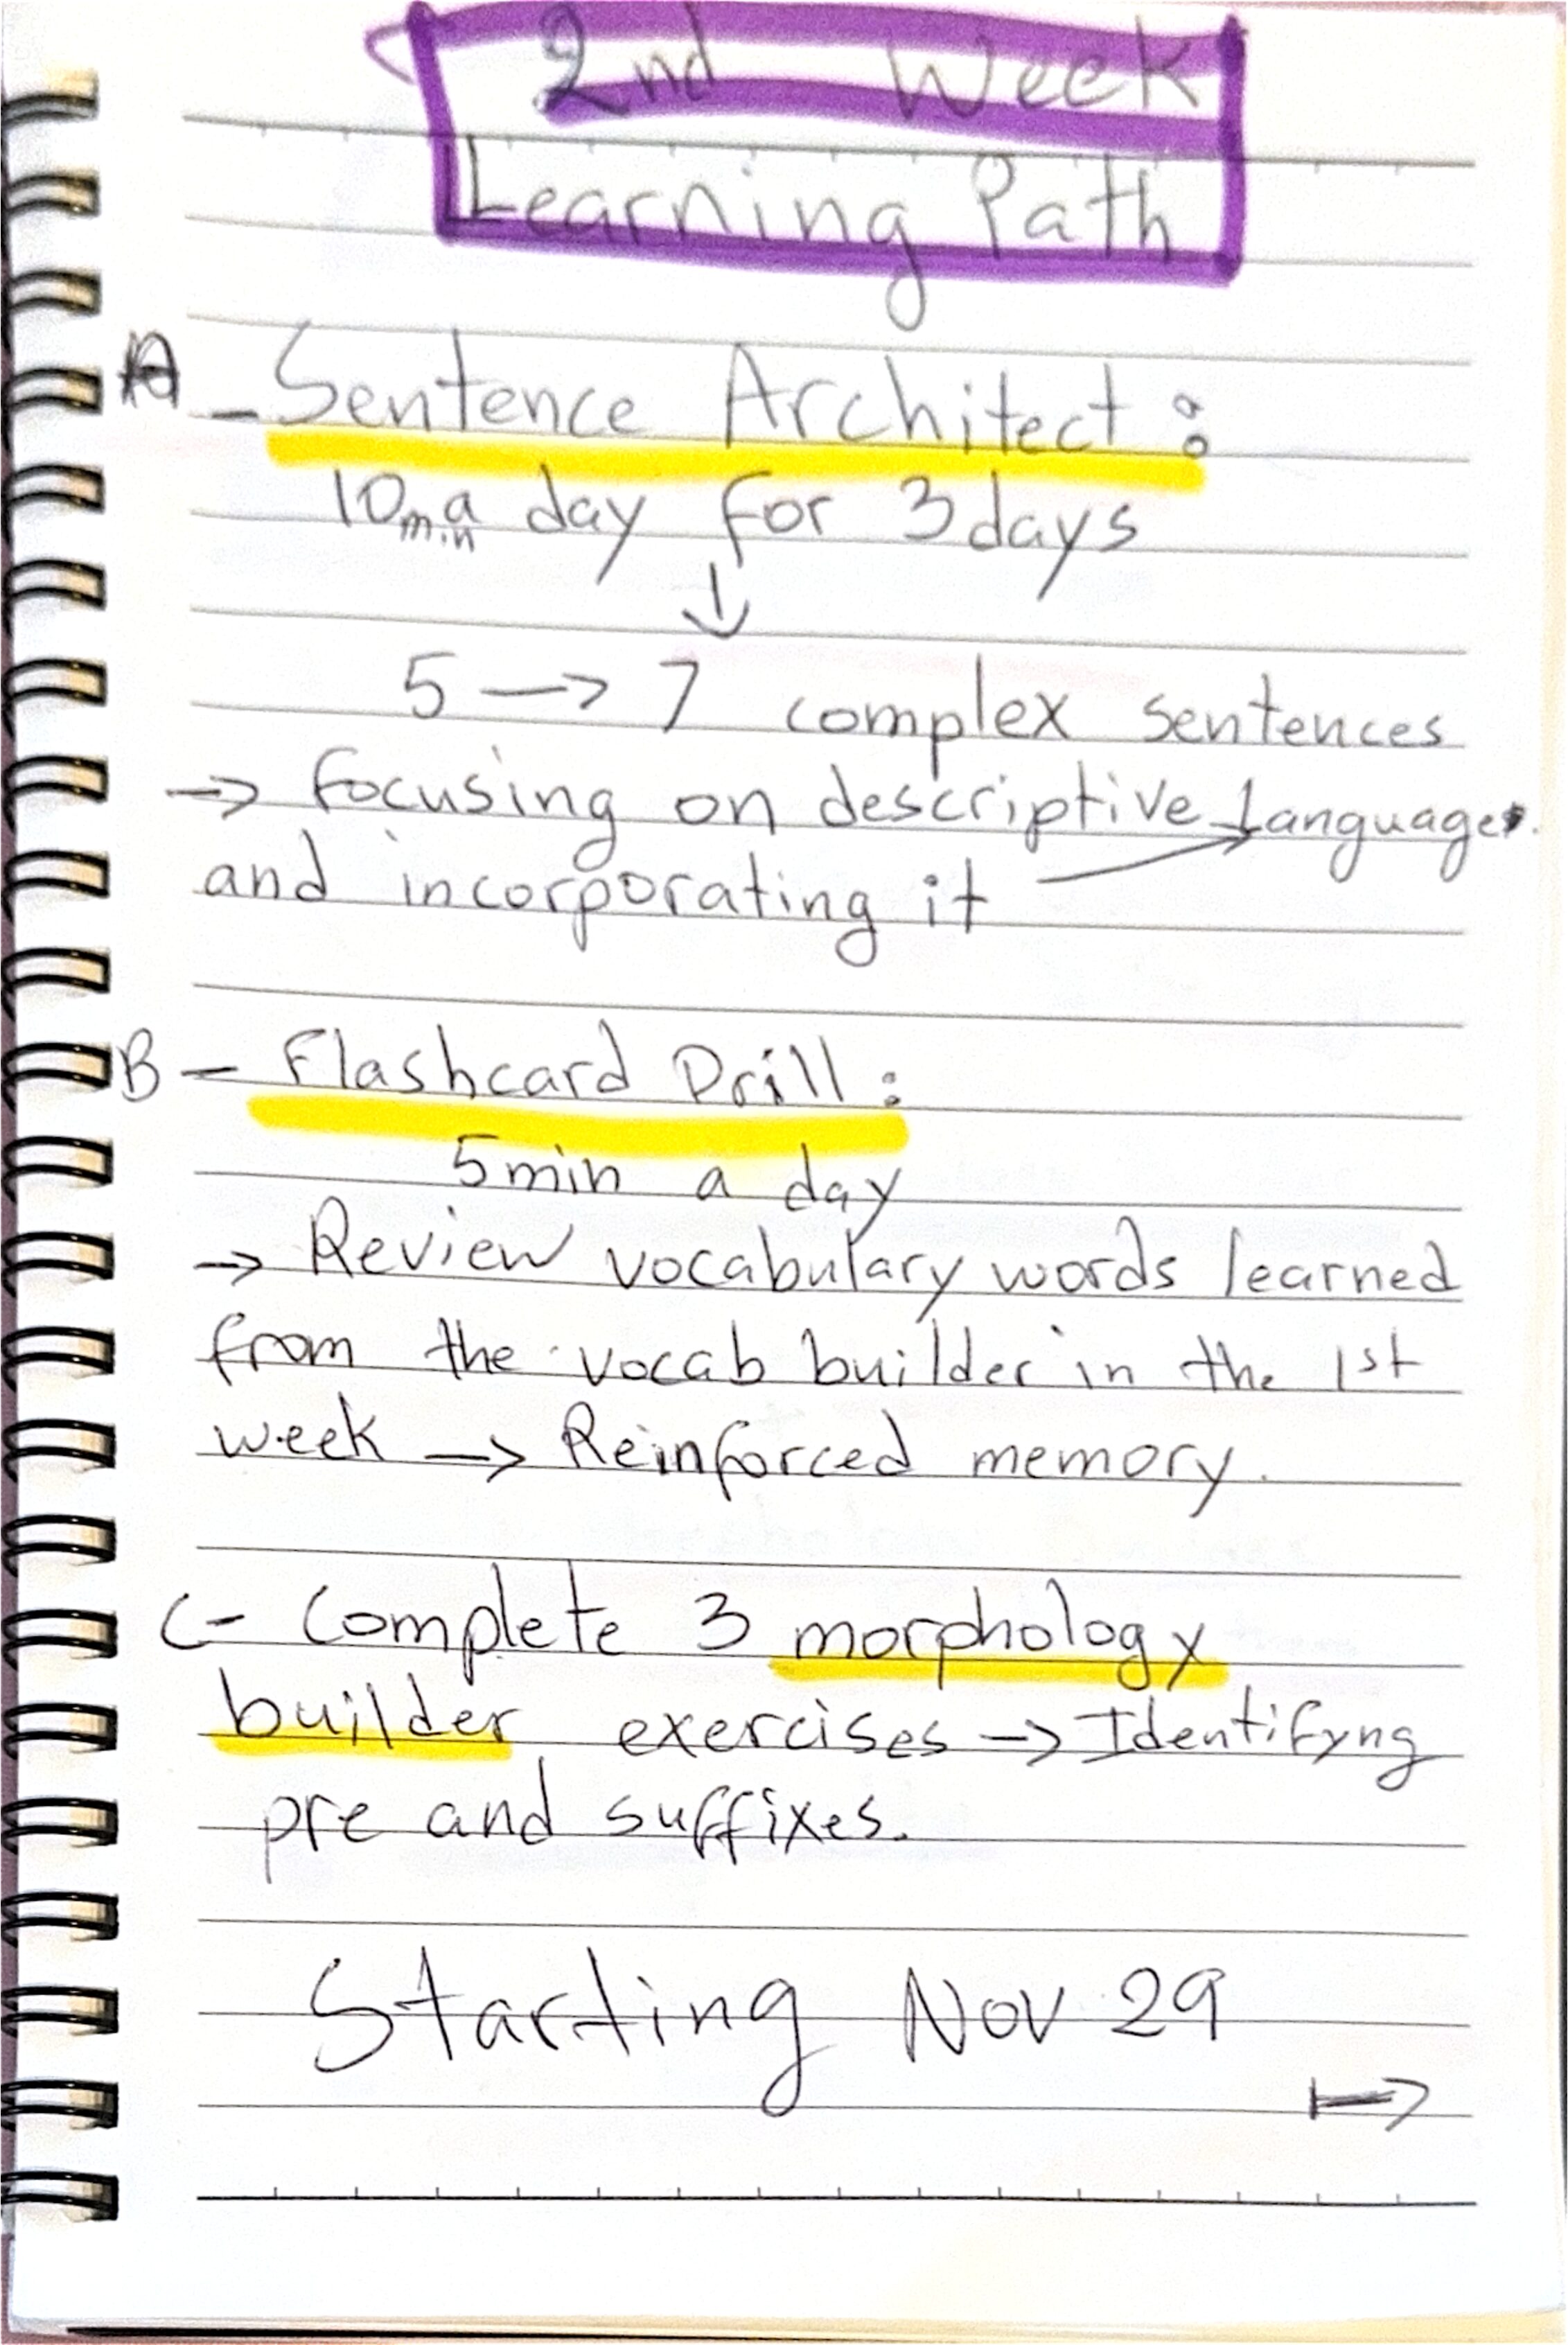 2nd Week
Learning Path
A - Sentence Architect :
10min a day for 3days
↓
5 → 7 complex sentences
→ focusing on descriptive language.
and incorporating it →
B - Flashcard Drill :
5min a day
→ Review vocabulary words learned
from the vocab builder in the 1st
week → Reinforced memory.
C- Complete 3 morphology
builder exercises → Identifyng
pre and suffixes.
Starting Nov 29
→